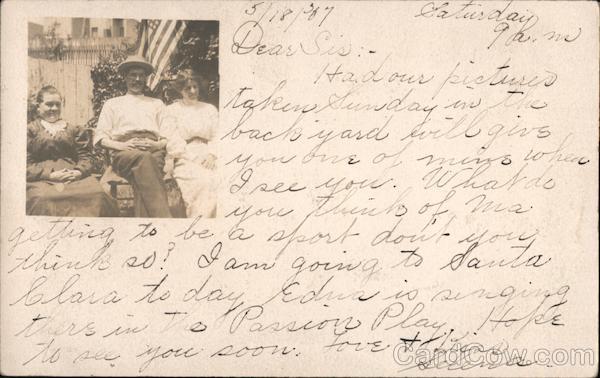 5/18/07 Saturday
9 a.m
Dear Sis:-
Had our pictures
taken Sunday in the
back yard will give
you one of mine when
I see you. What do
you think of Ma
getting to be a sport don't you
think so? I am going to Santa
Clara to day Edna is singing
there in the Passion Play. Hope
to see you soon. Love
CardCow.com